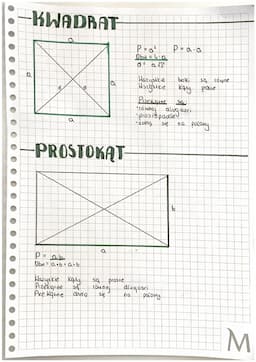 KWADRAT
a
a
a
a
P = a² P = a·a
Obw = 4·a
d = a√2
Wszystkie boki są równe
Wszystkie kąty proste
Przekątne są:
- równej długości
- prostopadłe
- dzielą się na połowy
PROSTOKĄT
b
a
P = a·b
Obw = a+b+a+b
Wszystkie kąty są proste
Przekątne są równej długości
Przekątne dzielą się na połowy
M